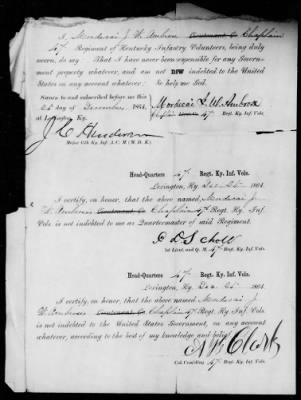 I, Mordecai J. W. Ambrose Lieutenant Co Chaplain
47th Regiment of Kentucky Infantry Volunteers, being duly
sworn, do say That I have never been responsible for any Govern-
ment property whatever, and am not NOW indebted to the United
States on any account whatever. So help me God.
Sworn to and subscribed before me this
26th day of December, 1864,
at Lexington Ky.
Mordecai J. W. Ambrose
Chaplain 47th Regt. Ky. Inf. Vols.
J C Henderson
Major 47th Ky. Inf. A. C. M. (M. D. K.)
Head-Quarters 47th Regt. Ky. Inf. Vols.
Lexington, Ky. Dec 26th 1864.
I certify, on honor, that the above named, Mordecai J.
W Ambrose Lieutenant Co Chaplain 47th Regt. Ky. Inf.
Vols. is not indebted to me as Quartermaster of said Regiment.
Scholl
1st Lieut. and Q. M. 47th Regt. Ky. Inf. Vols.
Head-Quarters 47th Regt. Ky. Inf. Vols.
Lexington, Ky. Dec 26th 1864.
I certify, on honor, that the above named Mordecai J.
W. Ambrose Lieutenant Co Chaplain 47th Regt. Ky. Inf. Vols.
is not indebted to the United States Government, on any account
whatever, according to the best of my knowledge and belief.
Clark
Col. Com'ding 47th Regt. Ky. Inf. Vols.